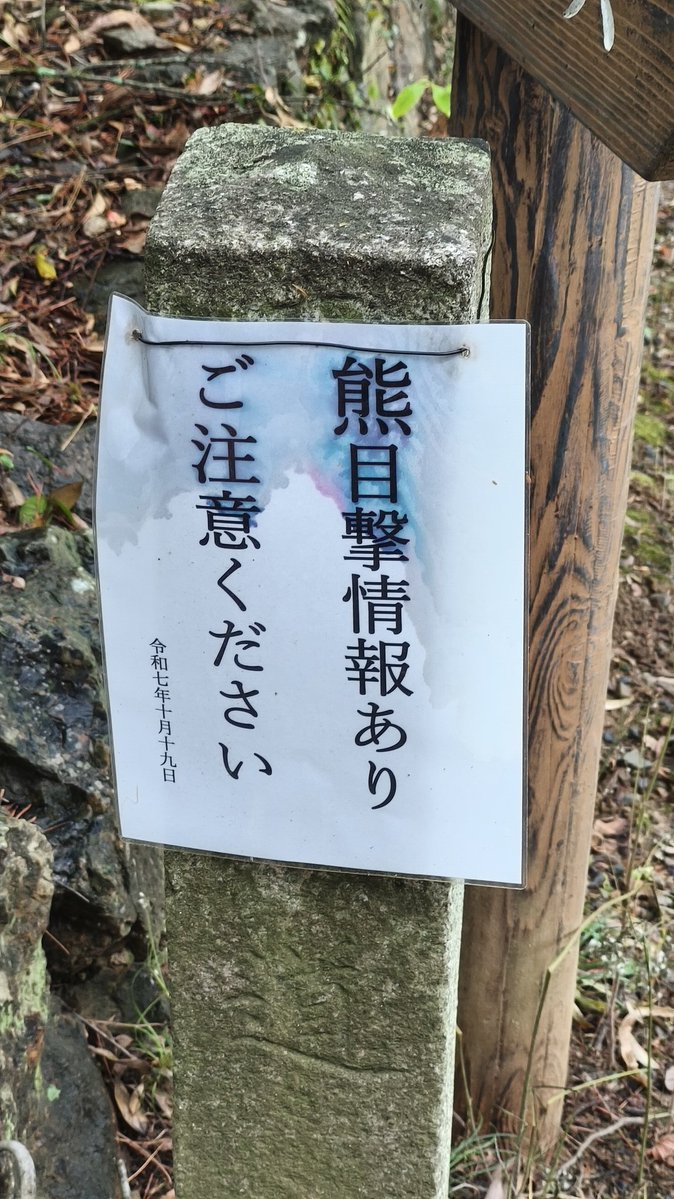 熊目撃情報あり
ご注意ください
令和七年十月十九日